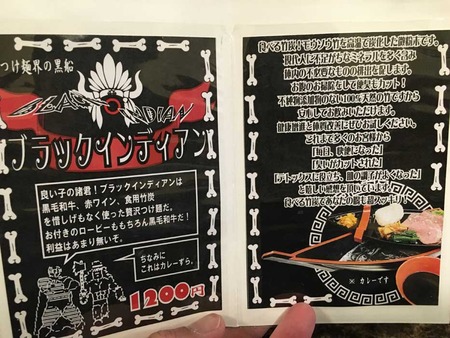 つけ麺界の黒船
BLACK INDIAN
ブラックインディアン
良い子の諸君！ブラックインディアンは
黒毛和牛、赤ワイン、食用竹炭
を惜しげもなく使った贅沢つけ麺だ。
お付きのローピーももちろん黒毛和牛だ！
利益はあまり無いぞ。
ちなみに
これはカレーずら。
1200円
食べる竹炭！モウソウ竹を高温で炭化した微粉末です。
現代人に不足がちなミネラルを多く含み
体内の不必要なものの排出を促します。
お腹のお掃除をして便臭もカット！
不純物添加物のない100%天然の竹ですから
安心してお飲みいただけます。
健康維持と体質改善にぜひお試しください。
これまで多くのお客様から
「毎日、快便になった」
「臭いがカットされた」
「デトックスに役立ち、腸の調子が良くなった」
と嬉しい感想を頂いています。
食べる竹炭であなたの腸も超スッキリ！
※ カレーです